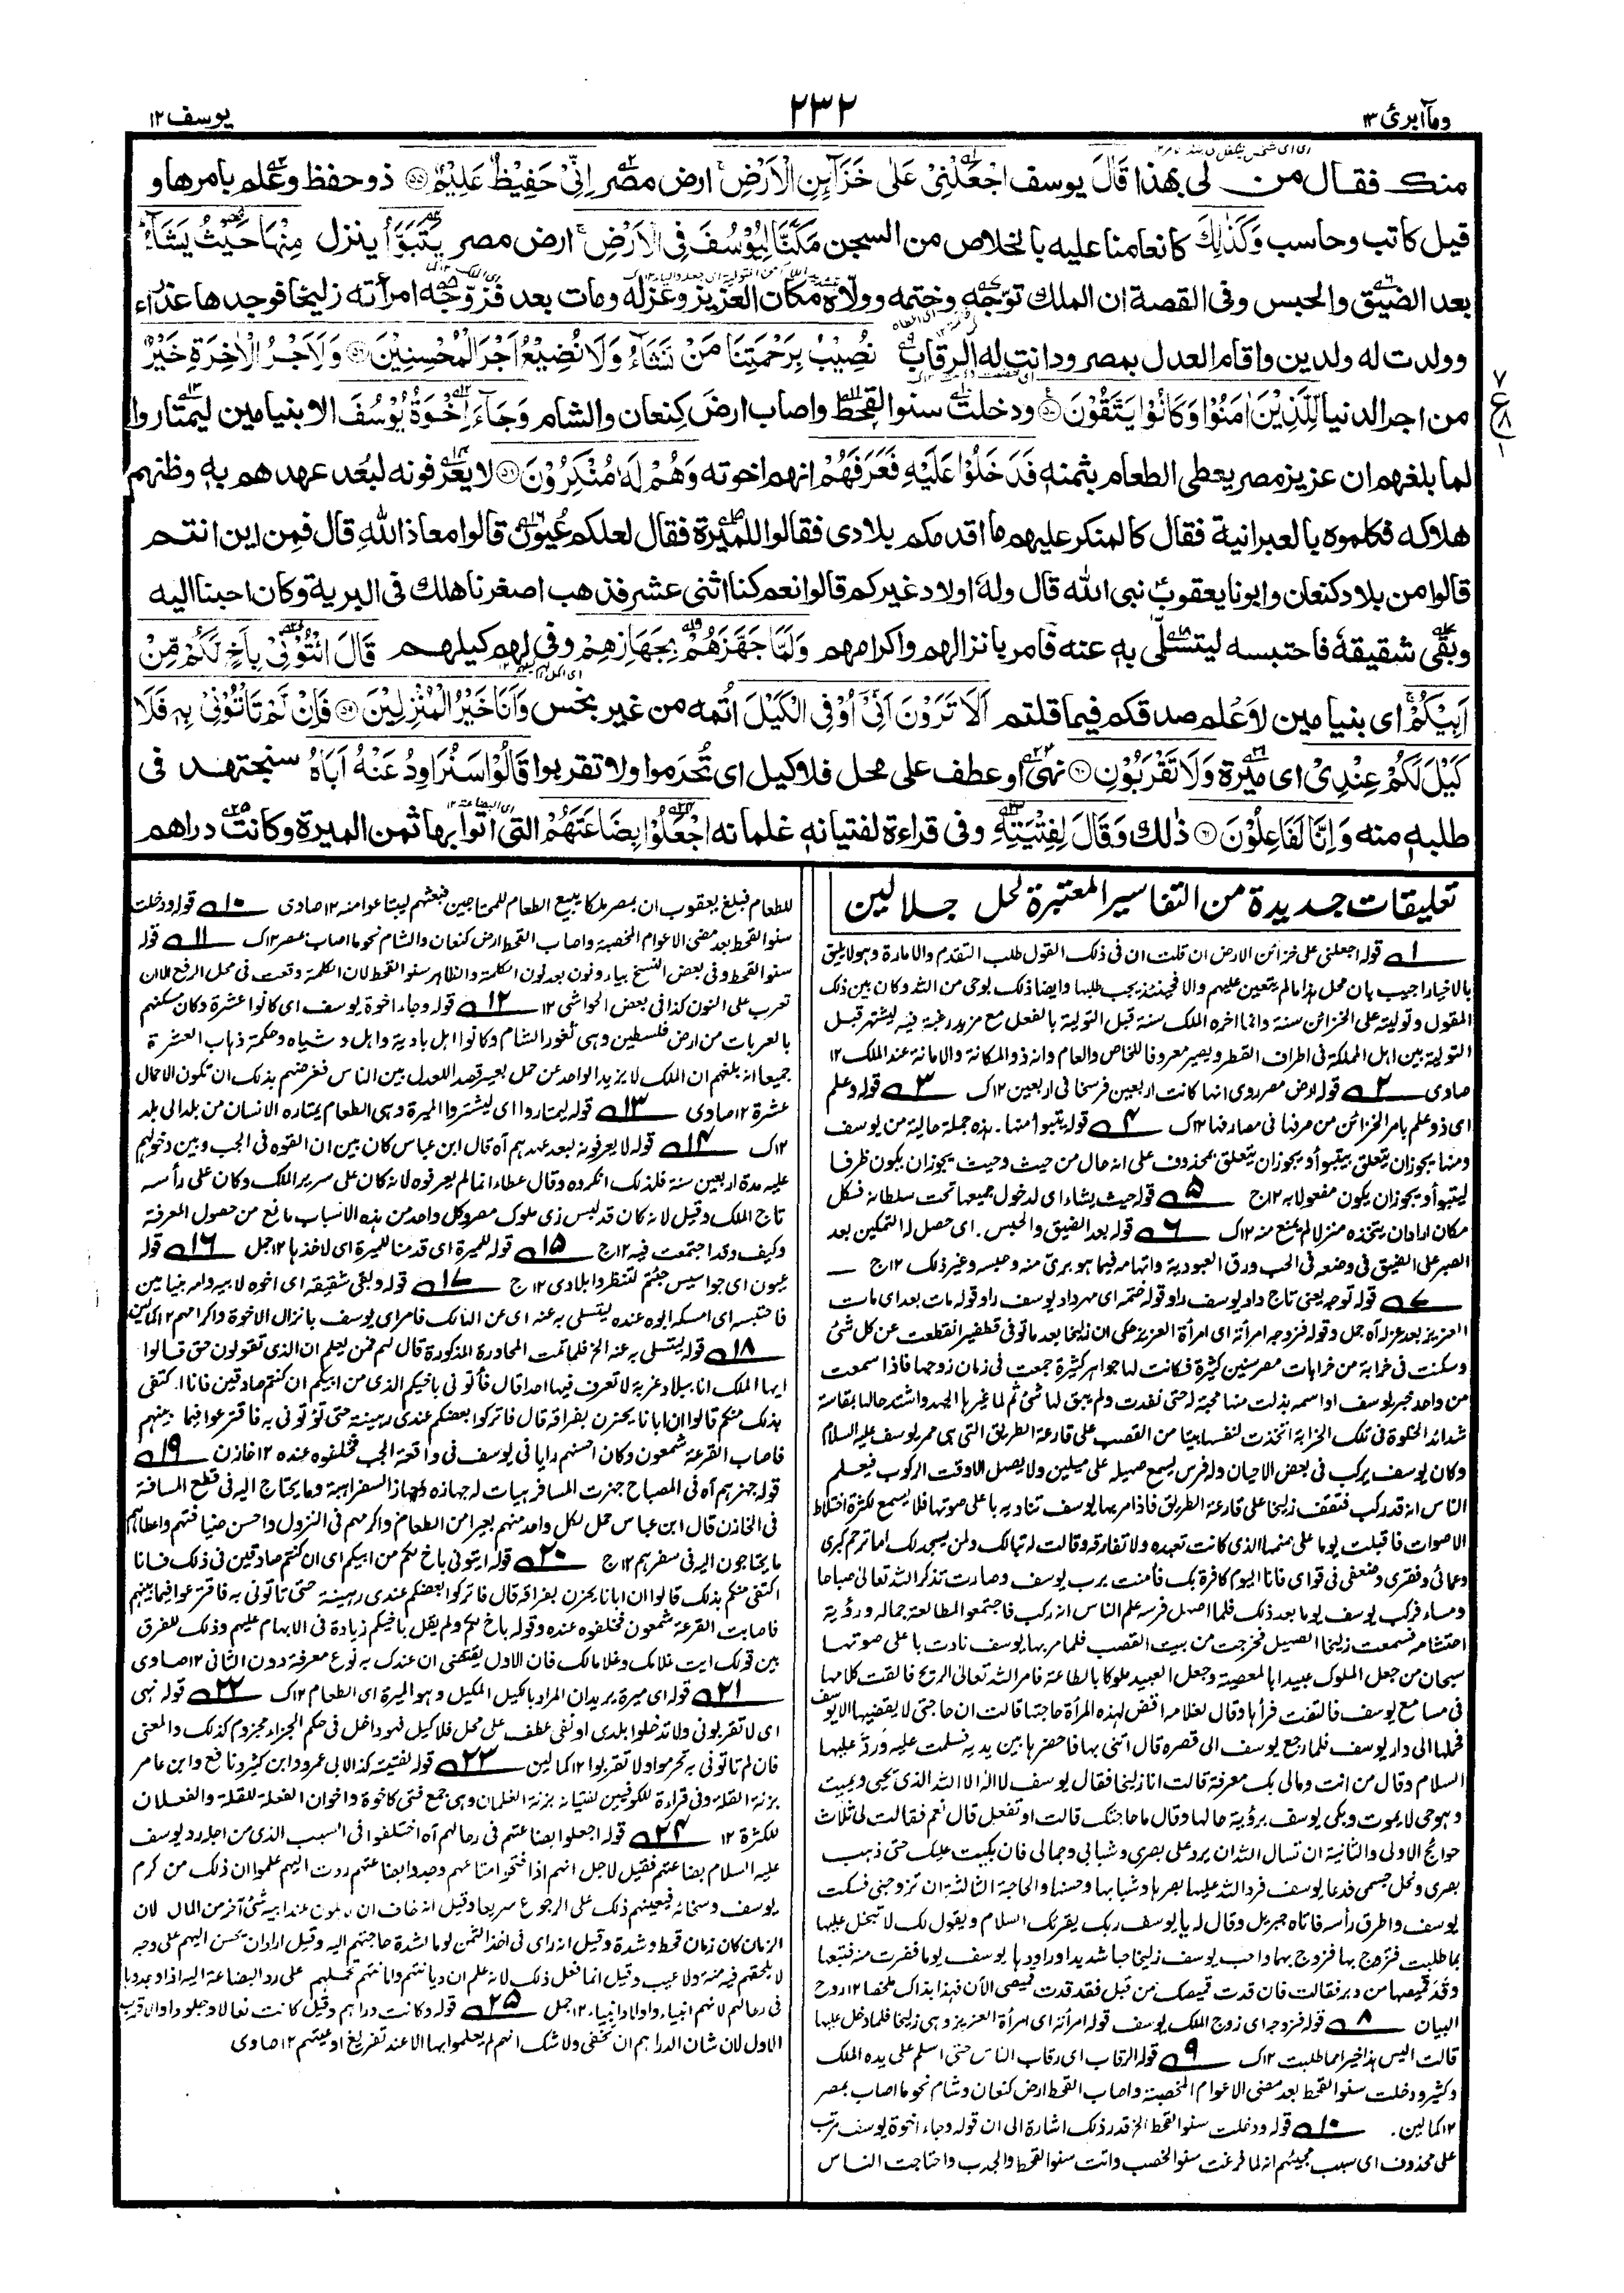 وما أبرئ ١٣
٢٣٢
يوسف ١٢
منك فقال من لي بهذا قَالَ يوسف اجْعَلْنِيْ عَلٰى خَزَآئِنِ الْاَرْضِ ارض مصر اِنِّيْ حَفِيْظٌ عَلِيْمٌ ۝٥٥ ذو حفظ وعلم بامرها و
قيل كاتب وحاسب وَكَذٰلِكَ كانعامنا عليه بالخلاص من السجن مَكَّنَّا لِيُوْسُفَ فِي الْاَرْضِ ارض مصر يَتَبَوَّاُ ينزل مِنْهَا حَيْثُ يَشَآءُ
بعد الضيق والحبس وفى القصة ان الملك توّجه وختمه وولّاه مكان العزيز وعزله ومات بعد فزوّجه امرأته زليخا فوجدها عذراء
وولدت له ولدين واقام العدل بمصر ودانت له الرقاب نُصِيْبُ بِرَحْمَتِنَا مَنْ نَّشَآءُ وَلَا نُضِيْعُ اَجْرَ الْمُحْسِنِيْنَ ۝٥٦ وَلَاَجْرُ الْاٰخِرَةِ خَيْرٌ
من اجر الدنيا لِّلَّذِيْنَ اٰمَنُوْا وَكَانُوْا يَتَّقُوْنَ ۝٥٧ ودخلت سنو القحط واصاب ارض كنعان والشام وَجَآءَ اِخْوَةُ يُوْسُفَ الا بنيامين ليمتاروا
لما بلغهم ان عزيز مصر يعطى الطعام بثمنه فَدَخَلُوْا عَلَيْهِ فَعَرَفَهُمْ انهم اخوته وَهُمْ لَهٗ مُنْكِرُوْنَ ۝٥٨ لا يعرفونه لبُعد عهدهم به وظنهم
هلاكه فكلموه بالعبرانية فقال كالمنكر عليهم ما اقدمكم بلادى فقالوا للميرة فقال لعلكم عُيون قالوا معاذ الله قال فمن اين انتم
قالوا من بلاد كنعان وابونا يعقوب نبى الله قال وله اولاد غيركم قالوا نعم كنا اثنى عشر فذهب اصغرنا هلك فى البرية وكان احبنا اليه
وبقى شقيقه فاحتبسه ليتسلّى به عنه فامر بانزالهم واكرامهم وَلَمَّا جَهَّزَهُمْ بِجَهَازِهِمْ وفى لهم كيلهم قَالَ ائْتُوْنِيْ بِاَخٍ لَّكُمْ مِّنْ
اَبِيْكُمْ اى بنيامين لاَعْلم صدقكم فيما قلتم اَلَا تَرَوْنَ اَنِّيْ اُوْفِي الْكَيْلَ اُتمه من غير بخس وَاَنَا خَيْرُ الْمُنْزِلِيْنَ ۝٥٩ فَاِنْ لَّمْ تَاْتُوْنِيْ بِهٖ فَلَا
كَيْلَ لَكُمْ عِنْدِيْ اى ميرة وَلَا تَقْرَبُوْنِ ۝٦٠ نهى او عطف على محل فلا كيل اى تُحرَموا ولا تقربوا قَالُوْا سَنُرَاوِدُ عَنْهُ اَبَاهُ سنجتهد فى
طلبه منه وَاِنَّا لَفَاعِلُوْنَ ۝٦١ ذلك وَقَالَ لِفِتْيَتِهِ وفى قراءة لفتيانه غلمانه اجْعَلُوْا بِضَاعَتَهُمْ التى اتوا بها ثمن الميرة وكانت دراهم
تعليقات جديدة من التفاسير المعتبرة لحل جلالين
١ قوله اجعلنى على خزائن الارض ان قلت ان فى ذلك القول طلب التقدم والامارة وهو لا يليق
بالاخيار اجيب بان محل هذا ما لم يتعين عليهم والا فحينئذ يجب طلبها وايضا ذلك بوحى من الله وكان بين ذلك
المقول وتوليته على الخزائن سنة وانما اخره الملك سنة قبل التولية بالفعل مع مزيد رغبة فيه ليشتهر قبل
التولية بين اهل المملكة فى اطراف القطر ويصير معروفا للخاص والعام وانه ذو المكانة والامانة عند الملك ١٢
صاوى ٢ قوله ارض مصر روى انها كانت اربعين فرسخا فى اربعين ١٢ك ٣ قوله وعلم
اى ذو علم بامر الخزائن من صرفها فى مصارفها ١٢ك ٤ قوله يتبوأ منها۔ هذه جملة حالية من يوسف
ومنها يجوز ان يتعلق بيتبوأ ويجوز ان يتعلق بمحذوف على انه حال من حيث وحيث يجوز ان يكون ظرفا
ليتبوأ ويجوز ان يكون مفعولا به ١٢ج ٥ قوله حيث يشاء اى لدخول جميعها تحت سلطانه فكل
مكان اراد ان يتخذه منزلا لم يمنع منه ١٢ك ٦ قوله بعد الضيق والحبس. اى حصل له التمكين بعد
الصبر على الضيق فى وضعه فى الجب ورق العبودية واتهامه فيما هو برئ منه وحبسه وغير ذلك ١٢ج
٧ قوله توجه يعنى تاج داد يوسف را وقوله ختمه اى مهر داد يوسف را وقوله مات بعد اى مات
العزيز بعد عزله آه جمل وقوله فزوجه امرأته اى امرأة العزيز حكى ان زليخا بعد ما توفى قطفير انقطعت عن كل شئ
وسكنت فى خرابة من خرابات مصر سنين كثيرة فكانت لها جواهر كثيرة جمعت فى زمان زوجها فاذا سمعت
من واحد خبر يوسف او اسمه بذلت منها محبة له حتى نفدت ولم يبق لها شئ ثم لما غيرها الجهد واشتد حالها بمقاساة
شدائد الخلوة فى تلك الخرابة اتخذت لنفسها بيتا من القصب على قارعة الطريق التى هى ممر يوسف عليه السلام
وكان يوسف يركب فى بعض الاحيان وله فرس يسمع صهيله على ميلين ولا يصهل الا وقت الركوب فيعلم
الناس انه قد ركب فتقف زليخا على قارعة الطريق فاذا مر بها يوسف تناديه باعلى صوتها فلا يسمع لكثرة اختلاط
الاصوات فاقبلت يوما على صنمها الذى كانت تعبده ولا تفارقه وقالت له تبا لك ولمن يسجد لك اما ترحم كبرى
وعمائى وفقرى وضعفى فى قواى فانا اليوم كافرة بك فآمنت برب يوسف وصارت تذكر الله تعالى صباحا
ومساء فركب يوسف يوما بعد ذلك فلما صهل فرسه علم الناس انه ركب فاجتمعوا لمطالعة جماله ورؤية
احتشامه فسمعت زليخا الصهيل فخرجت من بيت القصب فلما مر بها يوسف نادت باعلى صوتها
سبحان من جعل الملوك عبيدا بالمعصية وجعل العبيد ملوكا بالطاعة فامر الله تعالى الريح فالقت كلامها
فى مسامع يوسف فالتفت فرآها وقال لغلامه اقض لهذه المرأة حاجتها قالت ان حاجتى لا يقضيها الا يوسف
فحملها الى دار يوسف فلما رجع يوسف الى قصره قال ائتنى بها فاحضرها بين يديه فسلمت عليه ورد عليها
السلام وقال من انت ومالى بك معرفة قالت انا زليخا فقال يوسف لا اله الا الله الذى يحيى ويميت
وهو حى لا يموت وبكى يوسف برؤية حالها وقال ما حاجتك قالت او تفعل قال نعم فقالت لى ثلاث
حوائج الاولى والثانية ان تسال الله ان يرد على بصرى وشبابى وجمالى فان بكيت عليك حتى ذهب
بصرى ونحل جسمى فدعا يوسف فرد الله عليها بصرها وشبابها وحسنها والحاجة الثالثة ان تزوجنى فسكت
يوسف واطرق رأسه فاتاه جبريل وقال له يا يوسف ربك يقرئك السلام ويقول لك لا تبخل عليها
بما طلبت فتزوج بها فزوج بها واحب يوسف زليخا حبا شديدا وراودها يوسف يوما ففرت منه فتبعها
وقد قميصها من دبر فقالت فان قدت قميصك من قبل فقد قدت قميصى الآن فهذا بذاك ملخصا ١٢ روح
البيان ٨ قوله فزوجه اى زوج الملك يوسف قوله امرأته اى امرأة العزيز وهى زليخا فلما دخل عليها
قالت اليس هذا خيرا مما طلبت ١٢ك ٩ قوله الرقاب اى رقاب الناس حتى اسلم على يده الملك
وكثير ودخلت سنو القحط بعد مضى الاعوام المخصبة واصاب القحط ارض كنعان وشام نحو ما اصاب بمصر
١٢ كمالين. ١٠ قوله ودخلت سنو القحط الخ قدر ذلك اشارة الى ان قوله وجاء اخوة يوسف مرتب
على محذوف اى سبب مجيئهم انه لما فرغت سنو الخصب واتت سنو القحط والجدب واحتاجت الناس
للطعام فبلغ يعقوب ان بمصر ملكا يبيع الطعام للمحتاجين فبعثهم ليبتاعوا منه ١٢ صاوى ١٠ قوله ودخلت
سنو القحط بعد مضى الاعوام المخصبة واصاب القحط ارض كنعان والشام نحو ما اصاب بمصر ١٢ك ١١ قوله
سنو القحط وفى بعض النسخ بياء ونون بعد لون الكلمة والظاهر سنو القحط لان الكلمة وقعت فى محل الرفع الا ان
تعرب على النون كذا فى بعض الحواشى ١٢ ١٢ قوله وجاء اخوة يوسف اى كانوا عشرة وكان مسكنهم
بالعربات من ارض فلسطين وهى ثغور الشام وكانوا اهل بادية وابل وشياه وحكمة ذهاب العشرة
جميعا انه بلغهم ان الملك لا يزيد الواحد عن حمل بعير قصد العدل بين الناس فغرضهم بذلك ان تكون الاحمال
عشرة ١٢ صاوى ١٣ قوله ليمتاروا اى ليشتروا الميرة وهى الطعام يمتاره الانسان من بلد الى بلد
١٢ك ١٤ قوله لا يعرفونه لبعد عهدهم آه قال ابن عباس كان بين ان القوه فى الجب وبين دخولهم
عليه مدة اربعين سنة فلذلك انكروه وقال عطاء انما لم يعرفوه لانه كان على سرير الملك وكان على رأسه
تاج الملك وقيل لانه كان قد لبس زى ملوك مصر وكل واحد من هذه الاسباب مانع من حصول المعرفة
وكيف وقد اجتمعت فيه ١٢ج ١٥ قوله للميرة اى قدمنا للميرة اى لاخذها ١٢ جمل ١٦ قوله
عيون اى جواسيس جئتم لتنظروا بلادى ١٢ج ١٧ قوله وبقى شقيقه اى اخوه لابيه وامه بنيامين
فاحتبسه اى امسكه ابوه عنده يتسلى به عنه اى عن الهالك فامر اى يوسف بانزال الاخوة واكرامهم ١٢ كمالين
١٨ قوله ليتسلى به عنه الخ فلما تمت المحاورة المذكورة قال لهم فمن يعلم ان الذى تقولون حق قالوا
ايها الملك انا ببلاد غربة لا تعرف فيها احدا قال فأتونى باخيكم الذى من ابيكم ان كنتم صادقين فانا اكتفى
بذلك منكم قالوا ان ابانا يحزن بفراقه قال فاتركوا بعضكم عندى رهينة حتى تؤتونى به فاقترعوا فيما بينهم
فاصاب القرعة شمعون وكان احسنهم رايا فى يوسف فى واقعة الجب فخلفوه عنده ١٢ خازن ١٩
قوله جهزهم آه فى المصباح جهزت المسافر هيات له جهازه وجهاز السفر اهبته وما يحتاج اليه فى قطع المسافة
فى الخازن قال ابن عباس حمل لكل واحد منهم بعيرا من الطعام واكرمهم فى النزول واحسن ضيافتهم واعطاهم
ما يحتاجون اليه فى سفرهم ١٢ج ٢٠ قوله ايتونى باخ لكم من ابيكم اى ان كنتم صادقين فى ذلك فانا
اكتفى منكم بذلك قالوا ان ابانا يحزن بفراقه قال فاتركوا بعضكم عندى رهينة حتى تاتونى به فاقترعوا فيما بينهم
فاصابت القرعة شمعون فخلفوه عنده وقوله باخ لكم ولم يقل باخيكم زيادة فى الابهام عليهم وذلك للفرق
بين قولك ايت غلامك وغلاما لك فان الاول يقتضى ان عندك به نوع معرفة دون الثانى ١٢ صاوى
٢١ قوله اى ميرة يريد ان المراد بالكيل المكيل وهو الميرة اى الطعام ١٢ك ٢٢ قوله نهى
اى لا تقربونى ولا تدخلوا بلدى او نفى عطف على محل فلا كيل فهو داخل فى حكم الجزاء مجزوم كذلك والمعنى
فان لم تاتونى به تحرموا ولا تقربوا ١٢ كمالين ٢٣ قوله لفتيته كذا لابى عمرو وابن كثير ونافع وابن عامر
بزنة القلة وفى قراءة للكوفيين لفتيانه بزنة الغلمان وهى جمع فتى كاخوة واخوان الفعلة للقلة والفعلان
للكثرة ١٢ ٢٤ قوله اجعلوا بضاعتهم فى رحالهم آه اختلفوا فى السبب الذى من اجله رد يوسف
عليه السلام بضاعتهم فقيل لاجل انهم اذا فتحوا متاعهم وجدوا بضاعتهم ردت اليهم علموا ان ذلك من كرم
يوسف وسخائه فيعينهم ذلك على الرجوع سريعا وقيل انه خاف ان لا يكون عند ابيه شئ آخر من المال لان
الزمان كان زمان قحط وشدة وقيل انه راى فى اخذ الثمن لوما لشدة حاجتهم اليه وقيل اراد ان يحسن اليهم على وجه
لا يلحقهم فيه منة ولا عيب وقيل انما فعل ذلك لانه علم ان ديانتهم وامانتهم تحملهم على رد البضاعة اليه اذا وجدوها
فى رحالهم لانهم انبياء واولاد انبياء ١٢ جمل ٢٥ قوله وكانت دراهم وقيل كانت نعالا وجلودا والاقرب
الاول لان شان الدراهم ان تخفى ولا شك انهم لم يعلموا بها الا عند تفريغ اوعيتهم ١٢ صاوى